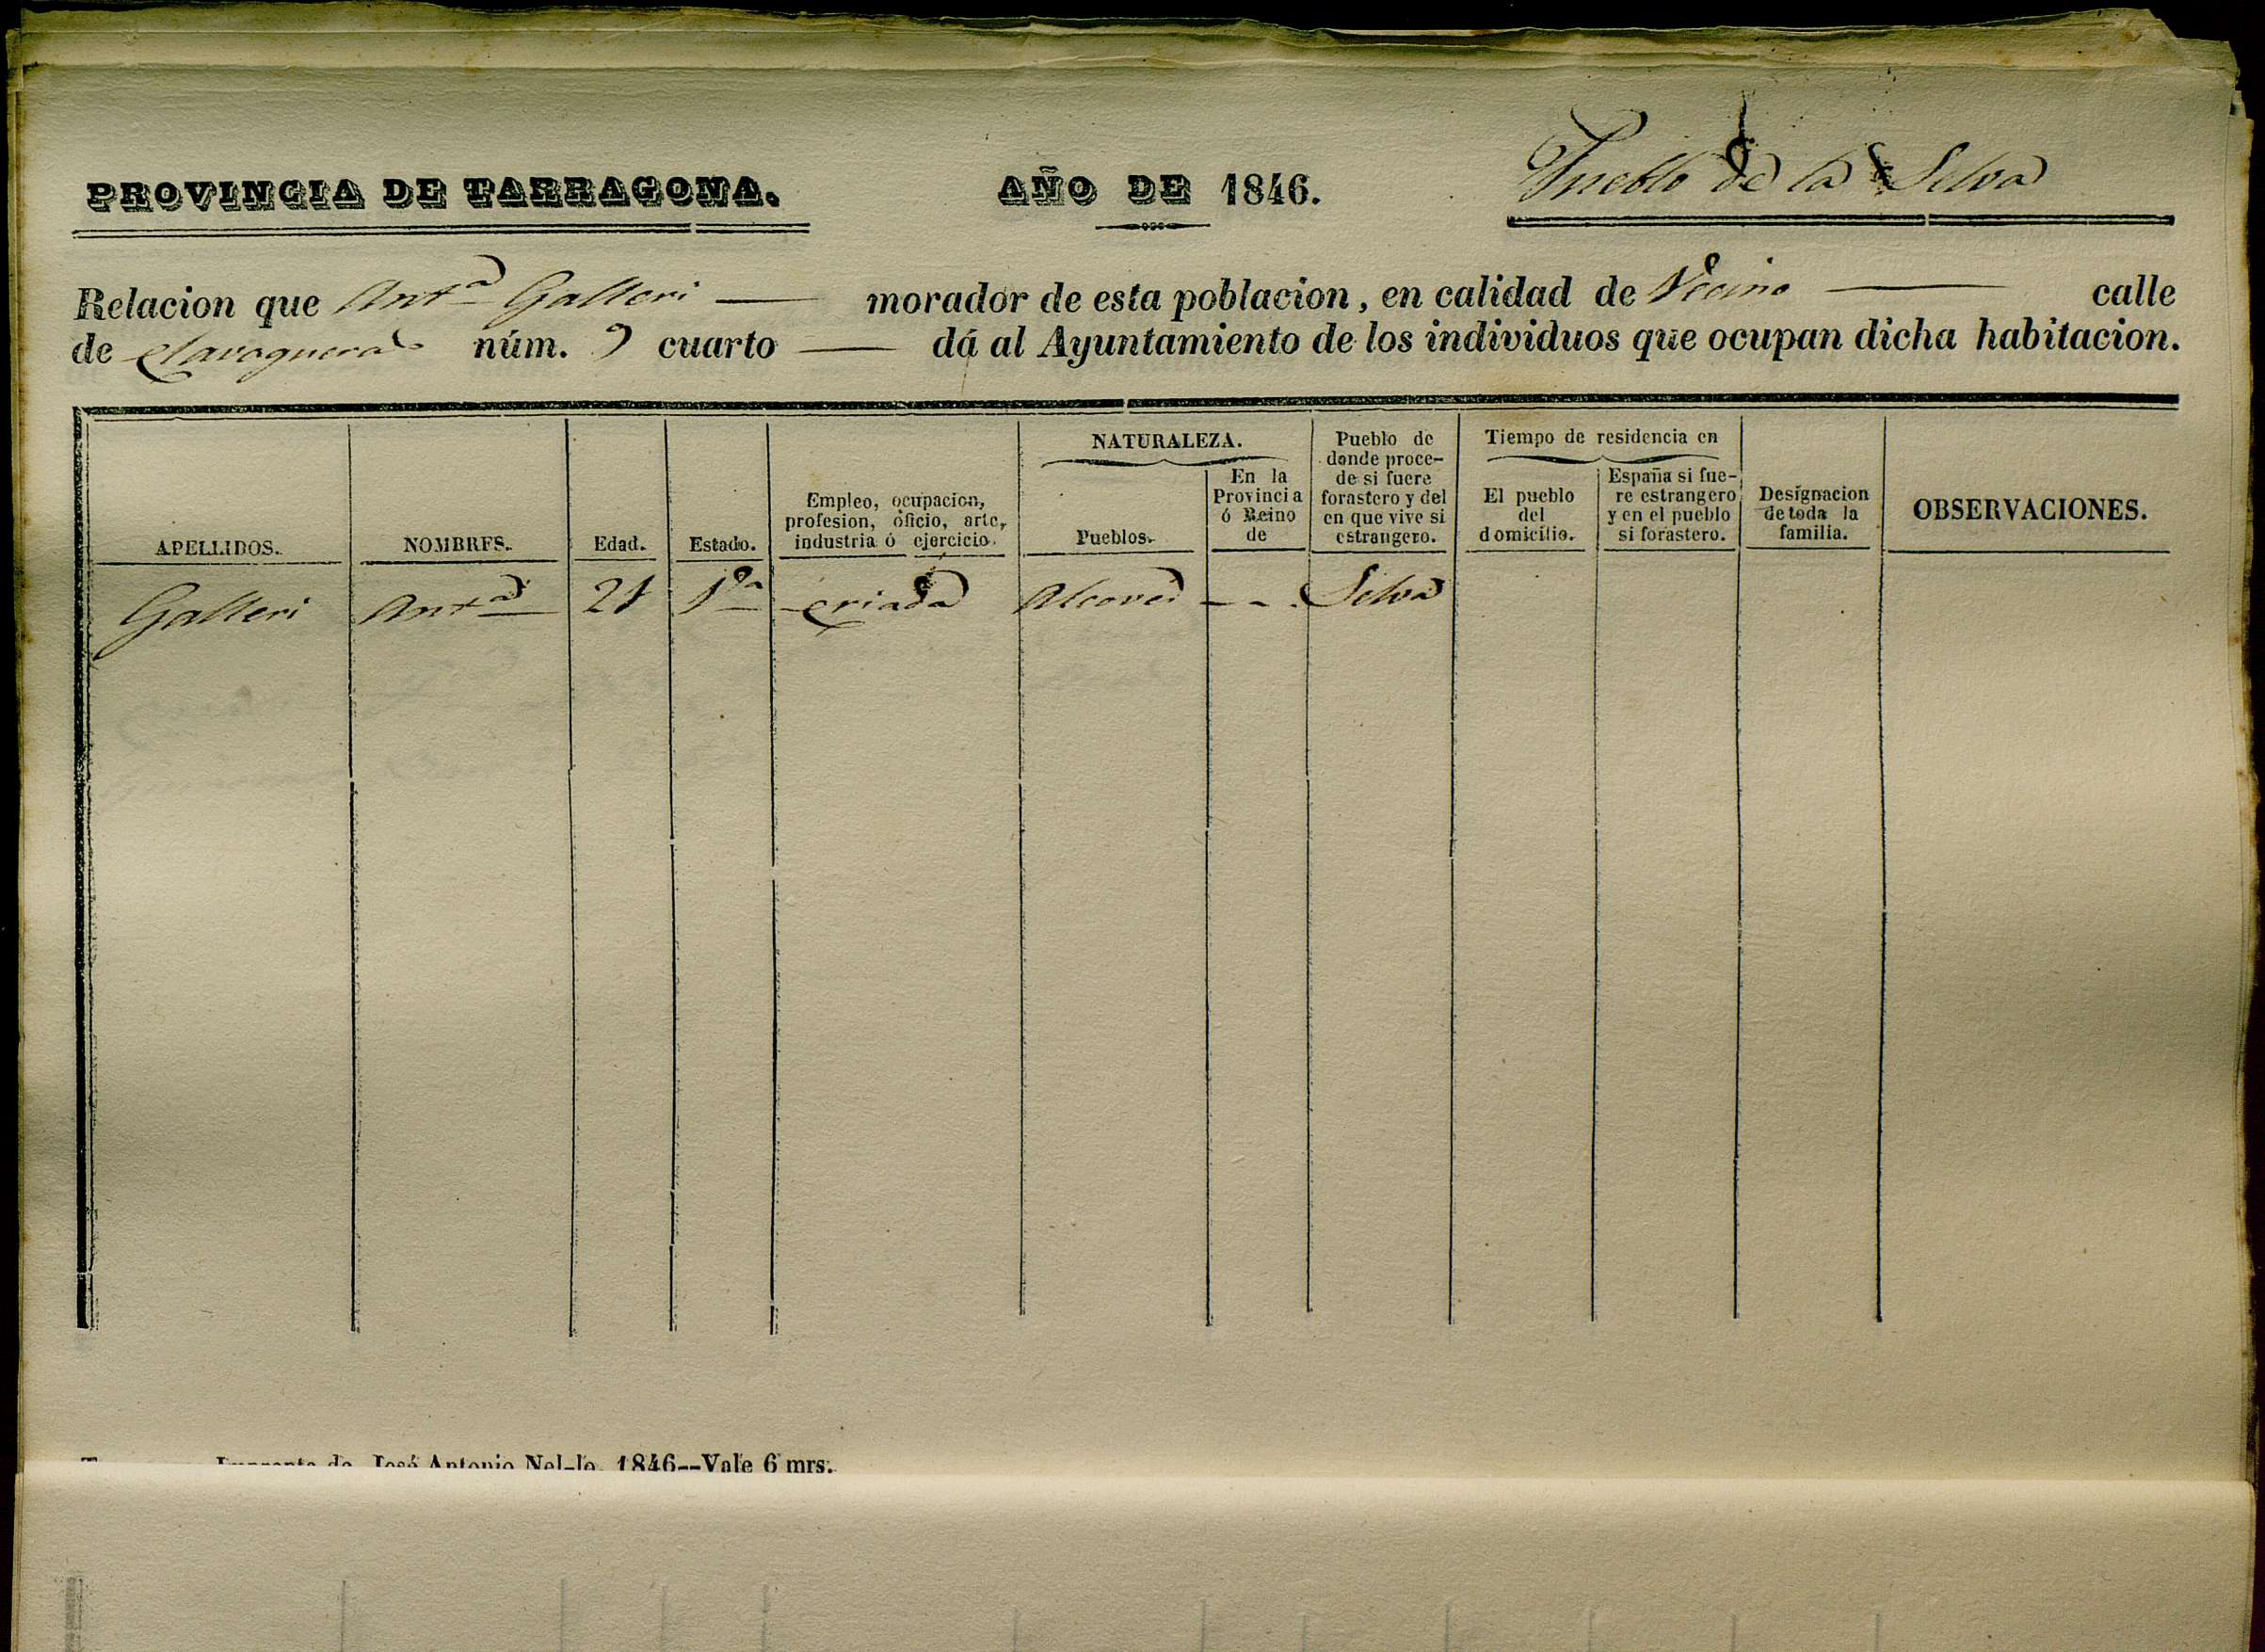 PROVINCIA DE TARRAGONA.
AÑO DE 1846.
Pueblo de la Selva
Relacion que Ant.ª Galleri — morador de esta poblacion, en calidad de Vecino — calle
de Clavaguera núm. 9 cuarto — dá al Ayuntamiento de los individuos que ocupan dicha habitacion.
APELLIDOS.
NOMBRES.
Edad.
Estado.
Empleo, ocupacion,
profesion, oficio, arte,
industria ó ejercicio.
NATURALEZA.
Pueblos.
En la
Provincia
ó Reino
de
Pueblo de
donde proce-
de si fuere
forastero y del
en que vive si
estrangero.
Tiempo de residencia en
El pueblo
del
domicilio.
España si fue-
re estrangero
y en el pueblo
si forastero.
Designacion
de toda la
familia.
OBSERVACIONES.
Galleri Ant.ª 21 criada Alcover - - . Selva
Imprenta de José Antonio Nel-lo. 1846--Vale 6 mrs.